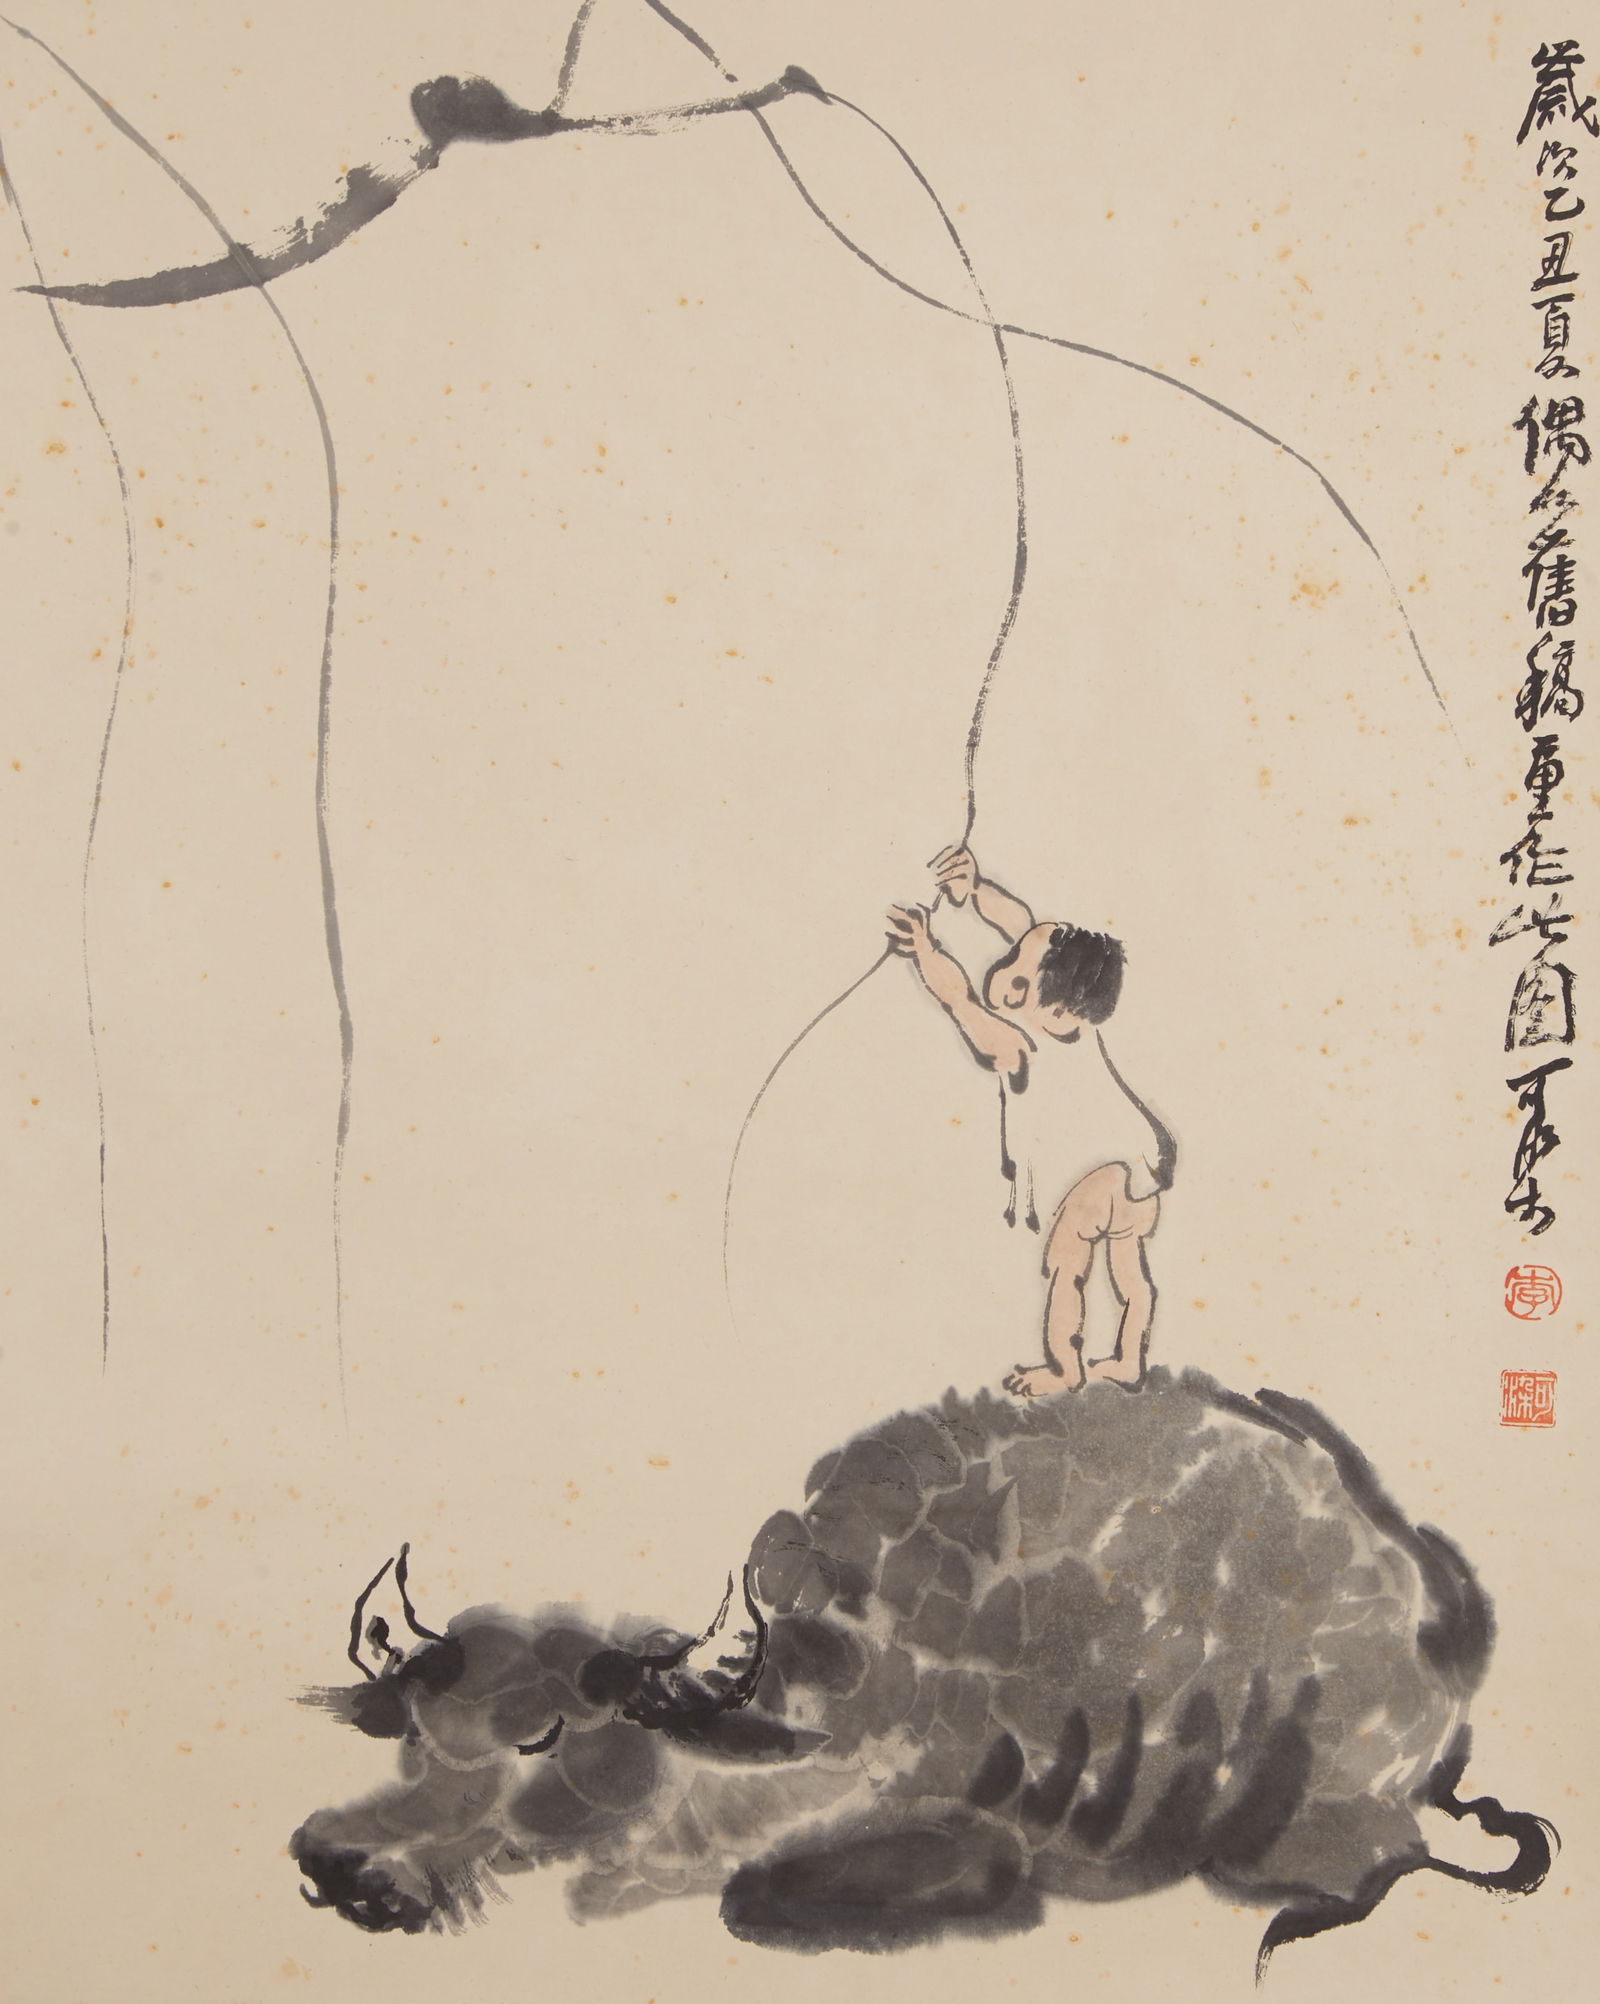 歲次乙丑夏偶㑹舊稿重作此圖可染
李
可染